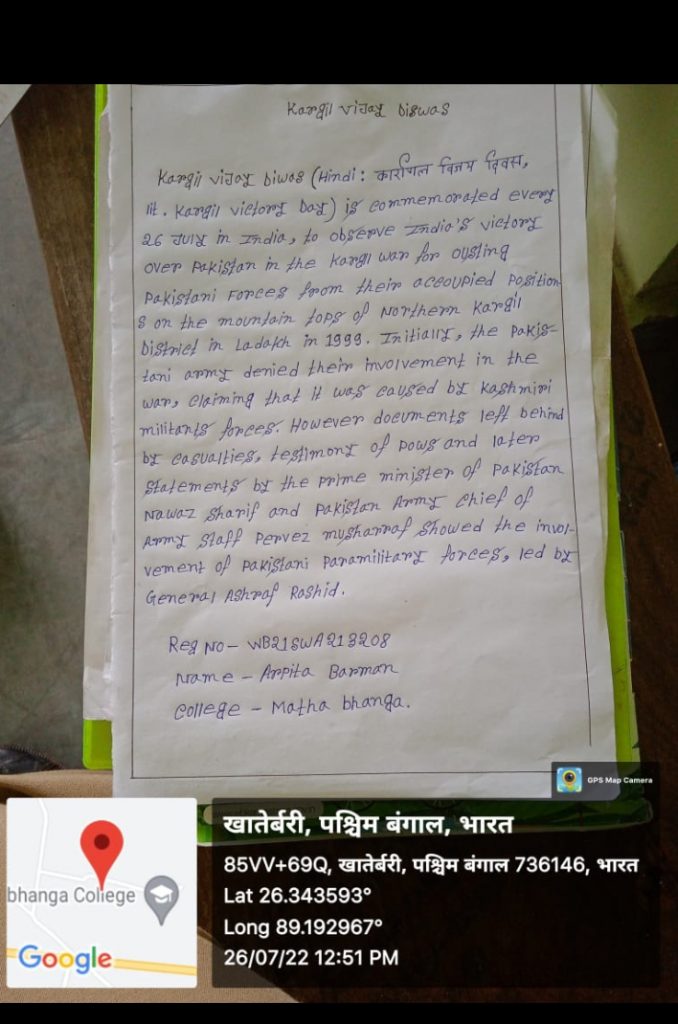 Kargil vijay Diswas
Kargil vijay Diwas (Hindi: कारगिल विजय दिवस,
lit. Kargil victory Day) is commemorated every
26 July in India, to observe India's victory
over Pakistan in the Kargil war for ousting
Pakistani Forces from their accoupied Position
s on the mountain tops of Northern Kargil
District in Ladakh in 1999. Initially, the Pakis-
tani army denied their involvement in the
war, claiming that it was caused by Kashmiri
militants forces. However documents left behind
by casualties, testimony of Pows and later
statements by the Prime minister of Pakistan
Nawaz Sharif and Pakistan Army chief of
Army Staff Pervez musharraf showed the invol-
vement of Pakistani Paramilitary forces, led by
General Ashraf Rashid.
Reg No - WB21SWA213208
Name - Arpita Barman
College - Matha bhanga.
GPS Map Camera
खातेर्बरी, पश्चिम बंगाल, भारत
85VV+69Q, खातेर्बरी, पश्चिम बंगाल 736146, भारत
Lat 26.343593°
Long 89.192967°
26/07/22 12:51 PM
bhanga College
Google